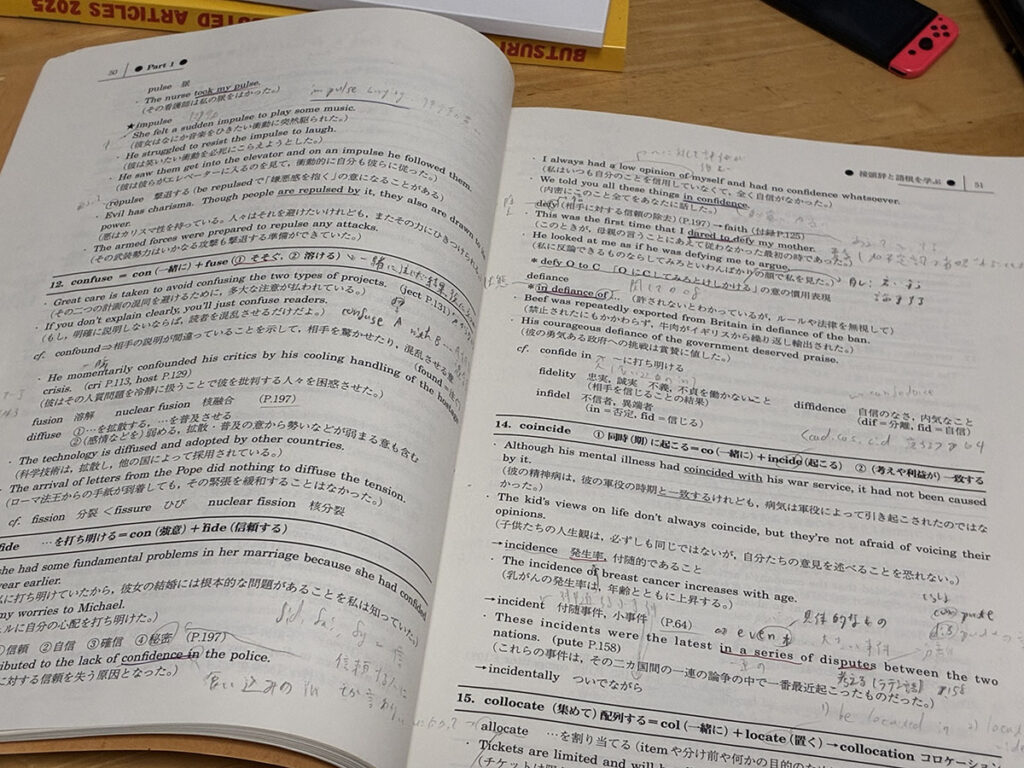 BUTSURI
UTED ARTICLES 2025
50 ● Part 1 ●
pulse 脈
・The nurse took my pulse.
(その看護師は私の脈をはかった。)
★impulse
She felt a sudden impulse to play some music.
(彼女はなにか音楽をひきたい衝動に突然駆られた。)
・He struggled to resist the impulse to laugh.
(彼は笑いたい衝動を必死にこらえようとした。)
・He saw them get into the elevator and on an impulse he followed them.
(彼は彼らがエレベーターに入るのを見て、衝動的に自分も彼らに従った。)
repulse 撃退する (be repulsedで「嫌悪感を抱く」の意になることがある)
・Evil has charisma. Though people are repulsed by it, they also are drawn to
power.
(悪はカリスマ性を持っている。人々はそれを避けたいけれども、またその力にひきつけられ
・The armed forces were prepared to repulse any attacks.
(その武装勢力はいかなる攻撃も撃退する準備ができていた。)
12. confuse = con (一緒に) + fuse (① そそぐ, ② 溶ける)
・Great care is taken to avoid confusing the two types of projects. (ject P.131)
(その二つの計画の混同を避けるために、多大な注意が払われている。)
・If you don't explain clearly, you'll just confuse readers.
(もし、明確に説明しないならば、読者を混乱させるだけだよ。)
confuse A with B
cf. confound⇒相手の説明が間違っていることを示して、相手を驚かせたり、混乱させる意 (found
・He momentarily confounded his critics by his cooling handling of the hostage
crisis. (cri P.113, host P.129)
(彼はその人質問題を冷静に扱うことで彼を批判する人々を困惑させた。)
fusion 溶解 nuclear fusion 核融合 (P.197)
diffuse ①…を拡散する, …を普及させる
②(感情などを)弱める, 拡散・普及の意から勢いなどが弱まる意も含む
・The technology is diffused and adopted by other countries.
(科学技術は、拡散し、他の国によって採用されている。)
・The arrival of letters from the Pope did nothing to diffuse the tension.
(ローマ法王からの手紙が到着しても、その緊張を緩和することはなかった。)
cf. fission 分裂 < fissure ひび nuclear fission 核分裂
fide …を打ち明ける = con (強意) + fide (信頼する)
she had some fundamental problems in her marriage because she had confided
year earlier.
に打ち明けていたから、彼女の結婚には根本的な問題があることを私は知っていた。)
my worries to Michael.
ェルに自分の心配を打ち明けた。)
①信頼 ②自信 ③確信 ④秘密 (P.197)
ributed to the lack of confidence in the police.
に対する信頼を失う原因となった。)
● 接頭辞と語根を学ぶ ● 51
・I always had a low opinion of myself and had no confidence whatsoever.
(私はいつも自分のことを信用していなくて、全く自信がなかった。)
・We told you all these things in confidence.
(内密にこのこと全てをあなたに話した。)
defy (相手に対する信頼の除去) (P.197) → faith (付録P.125)
・This was the first time that I dared to defy my mother.
(このときが、母親の言うことにあえて従わなかった最初の時であった。)
・He looked at me as if he was defying me to argue.
(私に反論できるものならしてみろといわんばかりの顔で私を見た。)
* defy O to C 「OにCしてみろとけしかける」の意の慣用表現
defiance
* in defiance of… (許されないとわかっているが、ルールや法律を無視して)
・Beef was repeatedly exported from Britain in defiance of the ban.
(禁止されたにもかかわらず、牛肉がイギリスから繰り返し輸出された。)
・His courageous defiance of the government deserved praise.
(彼の勇気ある政府への挑戦は賞賛に値した。)
cf. confide in ～に打ち明ける
fidelity 忠実, 誠実 不義, 不貞を働かないこと
(相手を信じることの結果)
diffidence 自信のなさ, 内気なこと
(dif = 分離, fid = 自信)
infidel 不信者, 異端者
(in = 否定, fid = 信じる)
14. coincide ① 同時(期)に起こる = co (一緒に) + incide (起こる) ② (考えや利益が) 一致する
・Although his mental illness had coincided with his war service, it had not been caused
by it.
(彼の精神病は、彼の軍役の時期と一致するけれども、病気は軍役によって引き起こされたのではな
かった。)
・The kid's views on life don't always coincide, but they're not afraid of voicing their
opinions.
(子供たちの人生観は、必ずしも同じではないが、自分たちの意見を述べることを恐れない。)
→incidence 発生率, 付随的であること
・The incidence of breast cancer increases with age.
(乳がんの発生率は、年齢とともに上昇する。)
→incident 付随事件, 小事件 (P.64)
・These incidents were the latest in a series of disputes between the two
nations. (pute P.158)
(これらの事件は、その二カ国間の一連の論争の中で一番最近起こったものだった。)
→incidentally ついでながら
15. collocate (集めて) 配列する = col (一緒に) + locate (置く) →collocation コロケーション
allocate …を割り当てる (itemや分け前や何かの目的のため
・Tickets are limited and will be